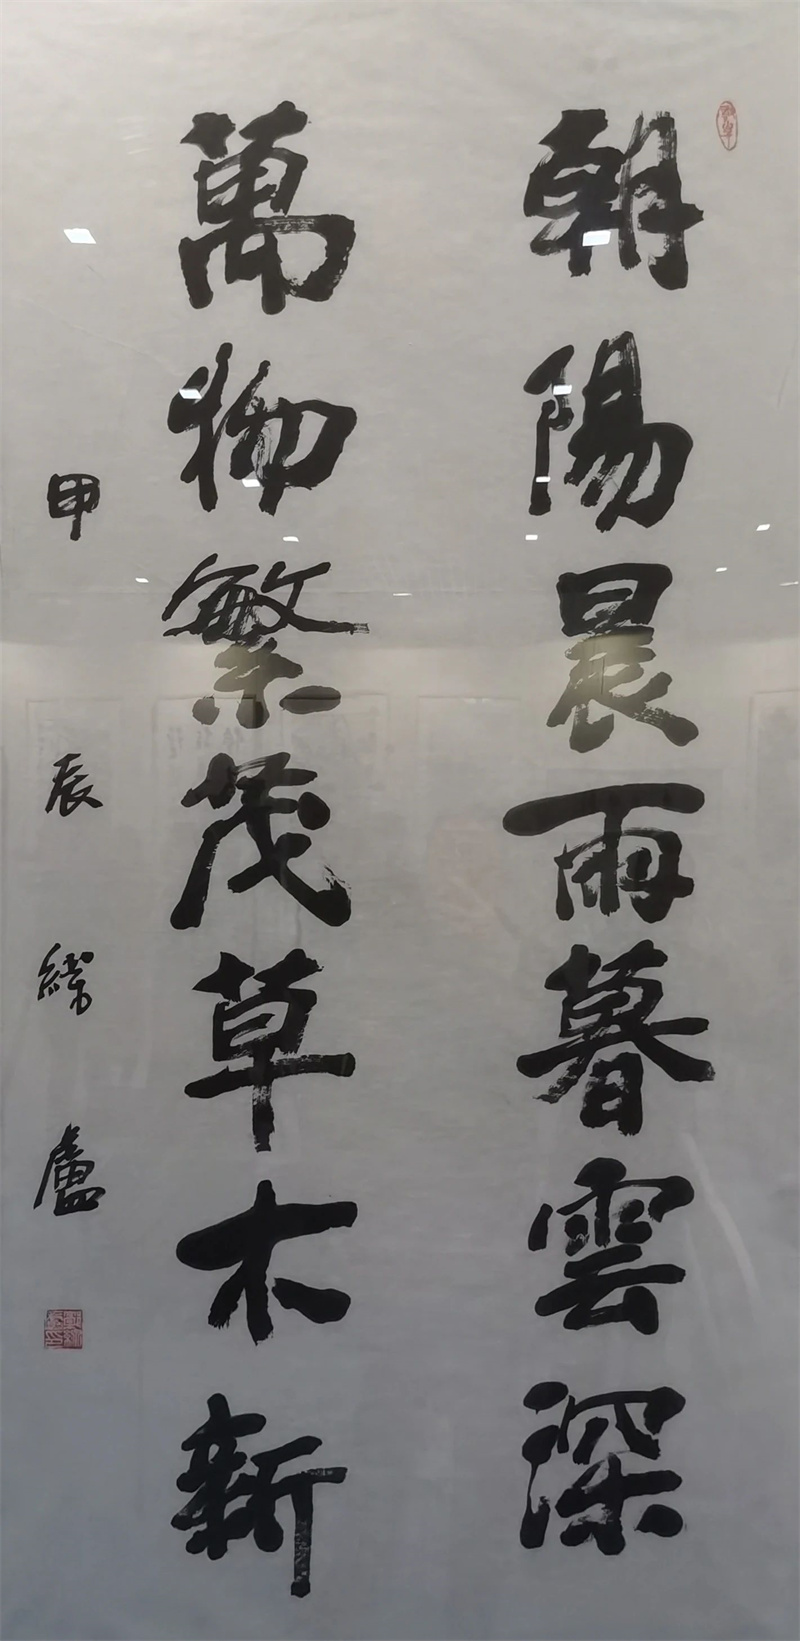 朝陽晨雨暮雲深
萬物繁茂草木新
甲辰綉廬